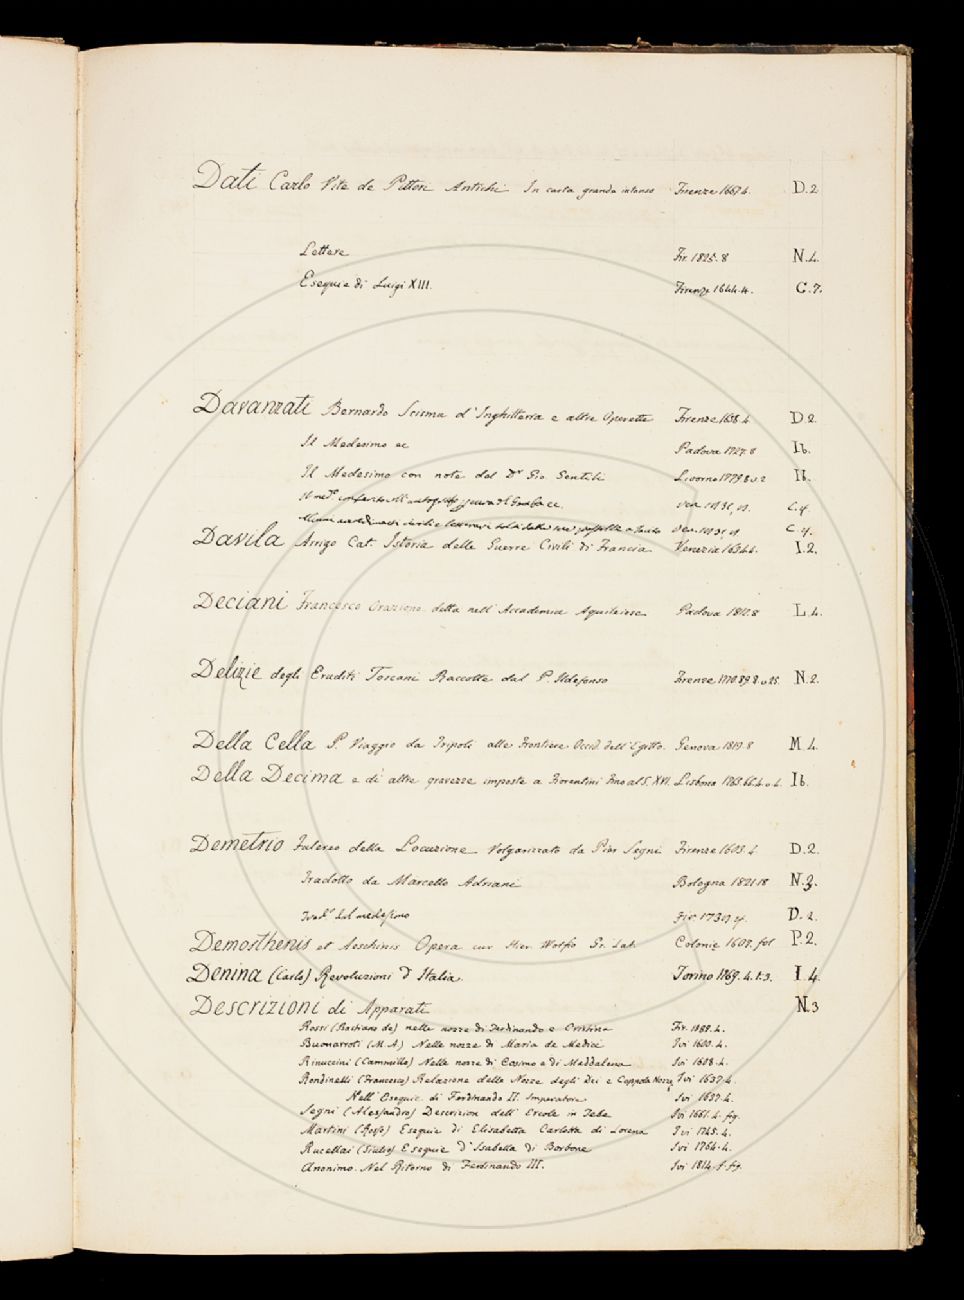 Dati Carlo Vite de Pittori Antichi In carta grande intonso Firenze 1667.4. D.2
Lettere Fir. 1825.8 N.4.
Esequie di Luigi XIII. Firenze 1644.4. G.7.
Davanzati Bernardo Scisma d'Inghilterra e altre Operette Firenze 1638.4 D.2.
Il Medesimo ec Padova 1727.8 Ib.
Il Medesimo con note del Dr Gio Gentili Livorno 1779.8 v.2 Ib.
C.4.
C.4.
Davila Arrigo Cat. Istoria delle Guerre Civili di Francia Venezia 1634.4. I.2.
Deciani Francesco Orazione detta nell'Accademia Aquileiese Padova 1812.8 L.4.
Delizie degli Eruditi Toscani Raccolte dal P. Ildefonso Firenze 1770.89.8.v.25. N.2.
Della Cella P. Viaggio da Tripoli alle Frontiere Occid. dell'Egitto. Genova 1819.8 M.4.
Della Decima e di altre gravezze imposte a Fiorentini fino al S. XVI. Lisbona 1765.66.4.v.4. Ib.
Demetrio Falereo della Locuzione Volgarizzato da Pier Segni Firenze 1603.4 D.2.
Tradotto da Marcello Adriani Bologna 1821.18 N.3.
Trad. del medesimo Fir. 1738.4. D.2.
Demosthenis et Aeschinis Opera cur Hier. Wolfio Gr. Lat. Colonie 1607. fol P.2.
Denina (Carlo) Rivoluzioni d'Italia. Torino 1769.4.t.3. I.4.
Descrizioni di Apparati N.3
Rossi (Bastiano de) nelle nozze di Ferdinando e Cristina Fir. 1589.4.
Buonarroti (M.A.) Nelle nozze di Maria de Medici Ivi 1600.4.
Rinuccini (Cammillo) Nelle nozze di Cosimo e di Maddalena Ivi 1608.4.
Rondinelli (Francesco) Relazione delle Nozze degli Dei e Coppola Nozze Ivi 1637.4.
Nell'Esequie di Ferdinando II. Imperatore Ivi 1637.4.
Segni (Alessandro) Descrizion dell'Ercole in Tebe Ivi 1661.4.fig.
Martini Esequie di Elisabetta Carlotta di Lorena Ivi 1745.4.
Rucellai (Giulio) Esequie d'Isabella di Borbone Ivi 1764.4.
Anonimo. Nel Ritorno di Ferdinando III. Ivi 1814.f.fig.